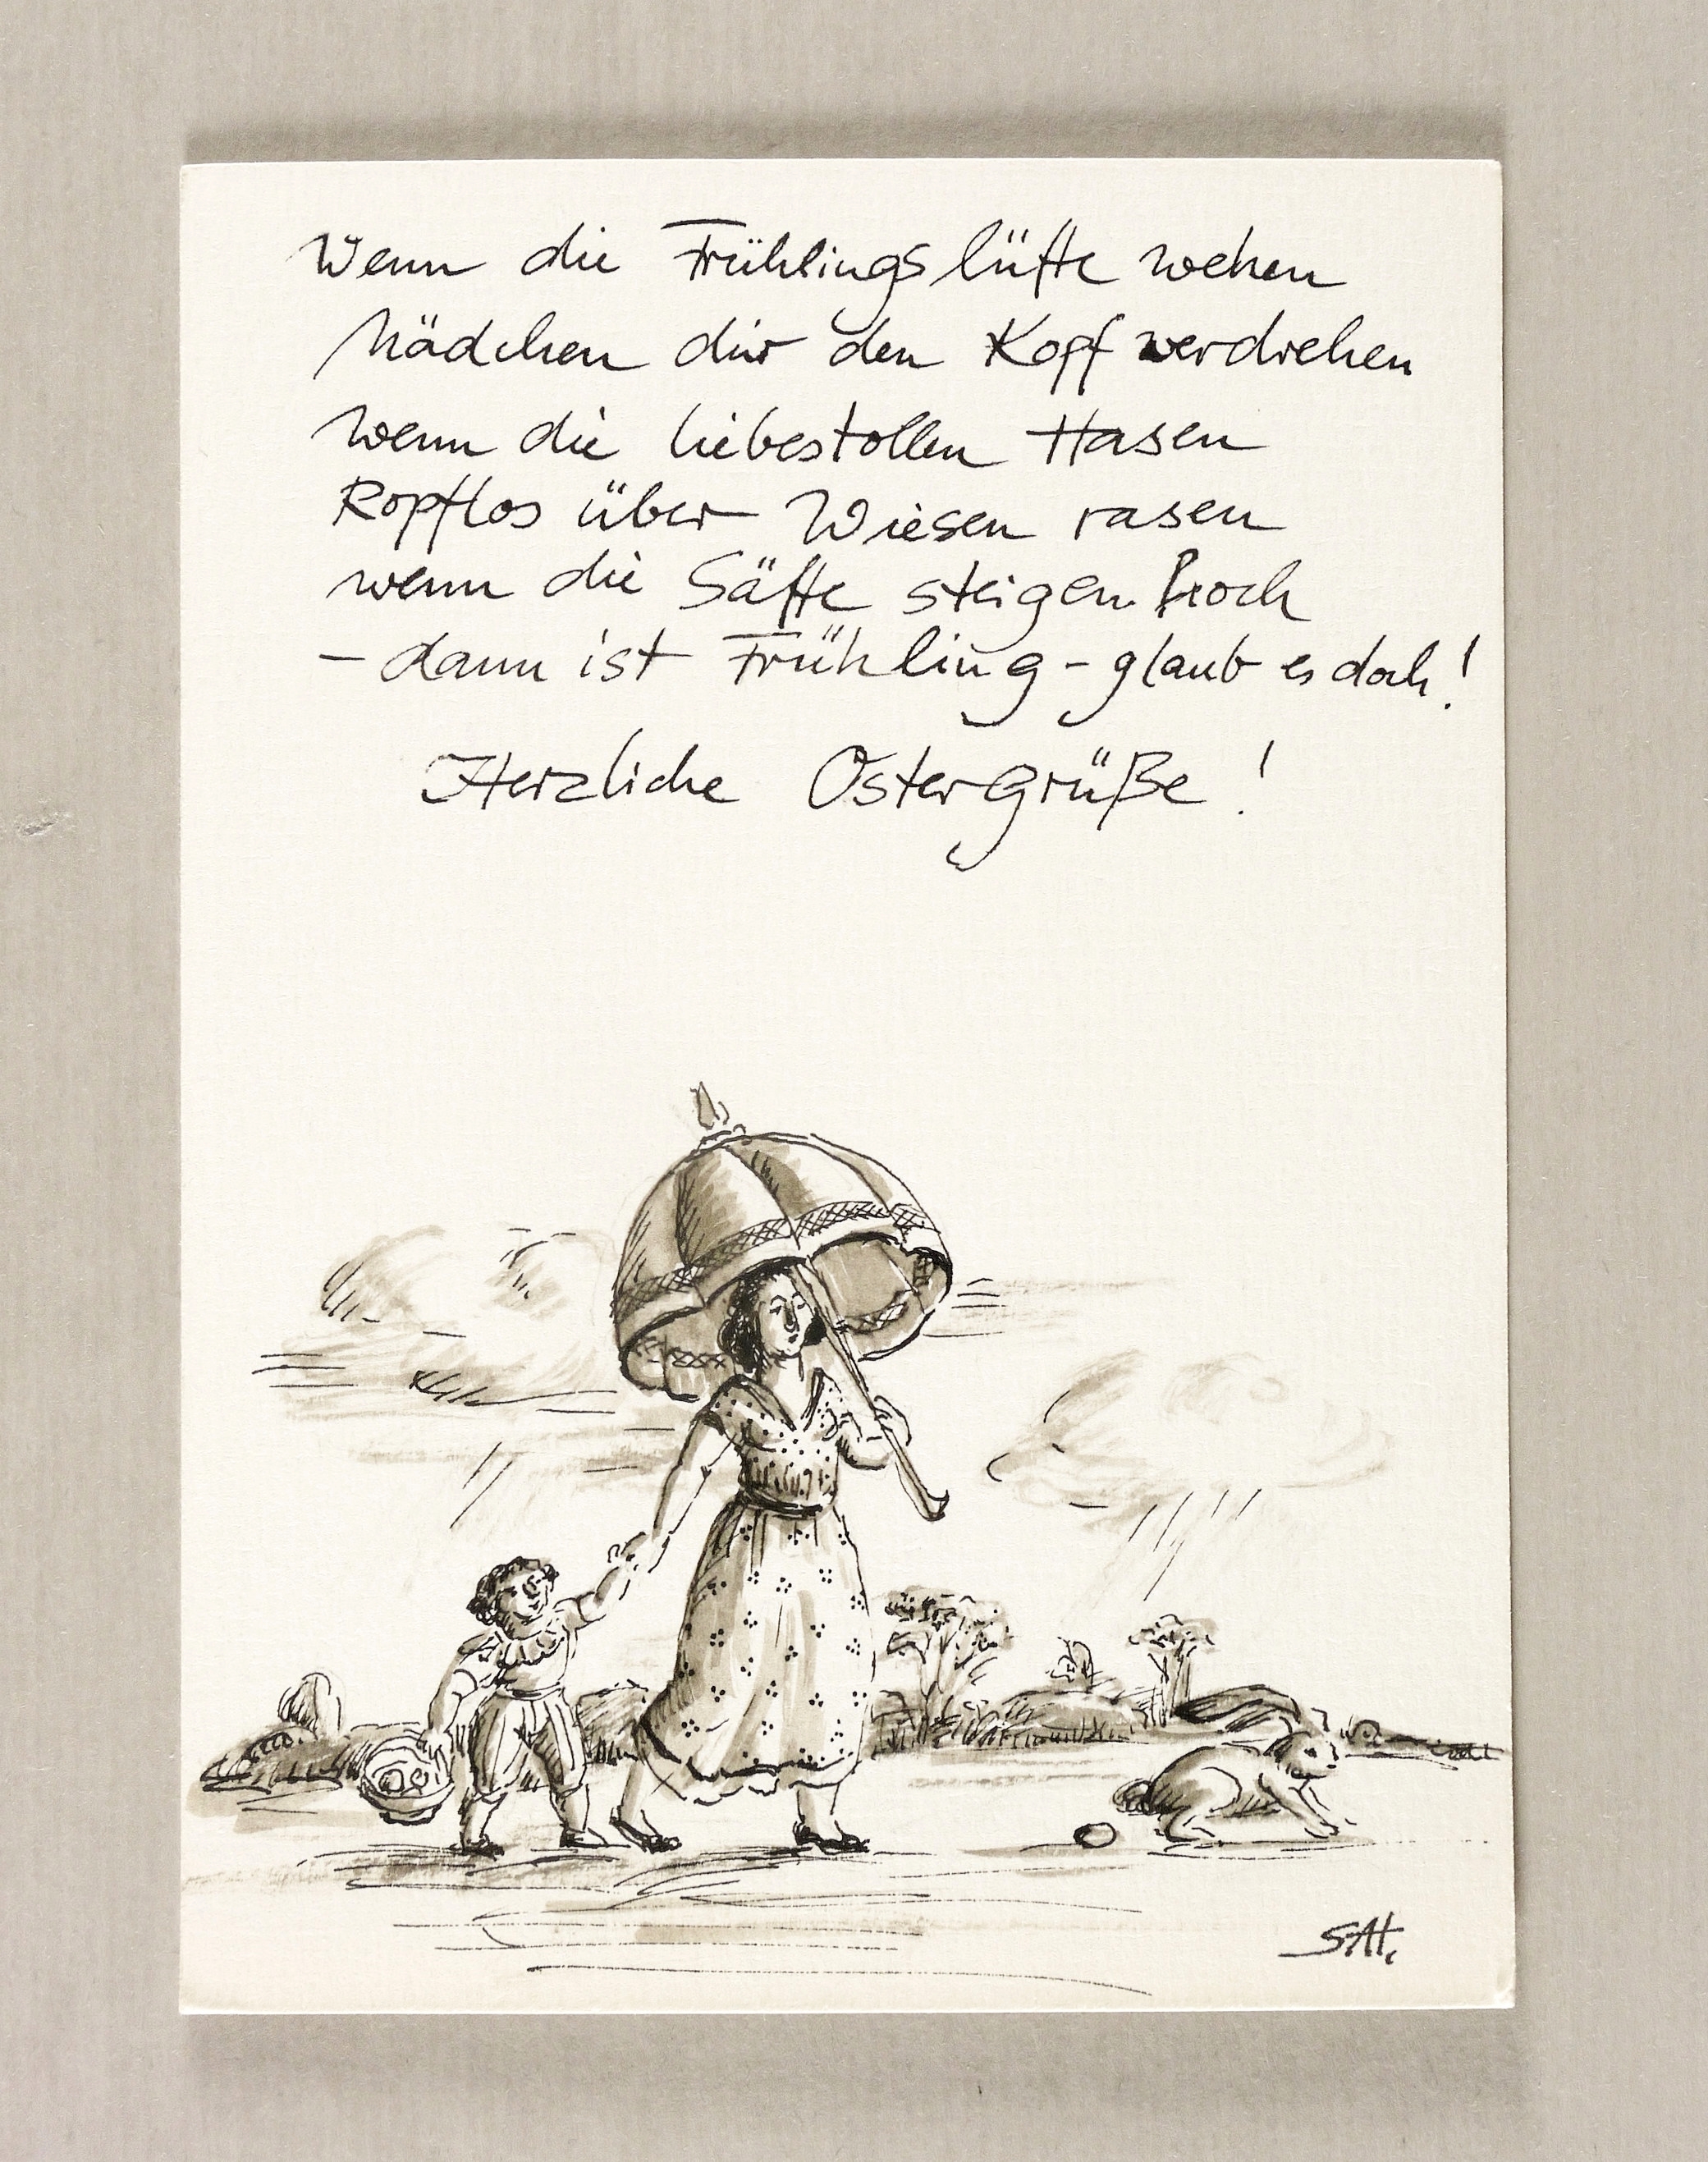 Wenn die Frühlingslüfte wehen
Mädchen dir den Kopf verdrehen
wenn die liebestollen Hasen
Kopflos über Wiesen rasen
wenn die Säfte steigen hoch
– dann ist Frühling – glaub es doch!
Herzliche Ostergrüße!
S.H.